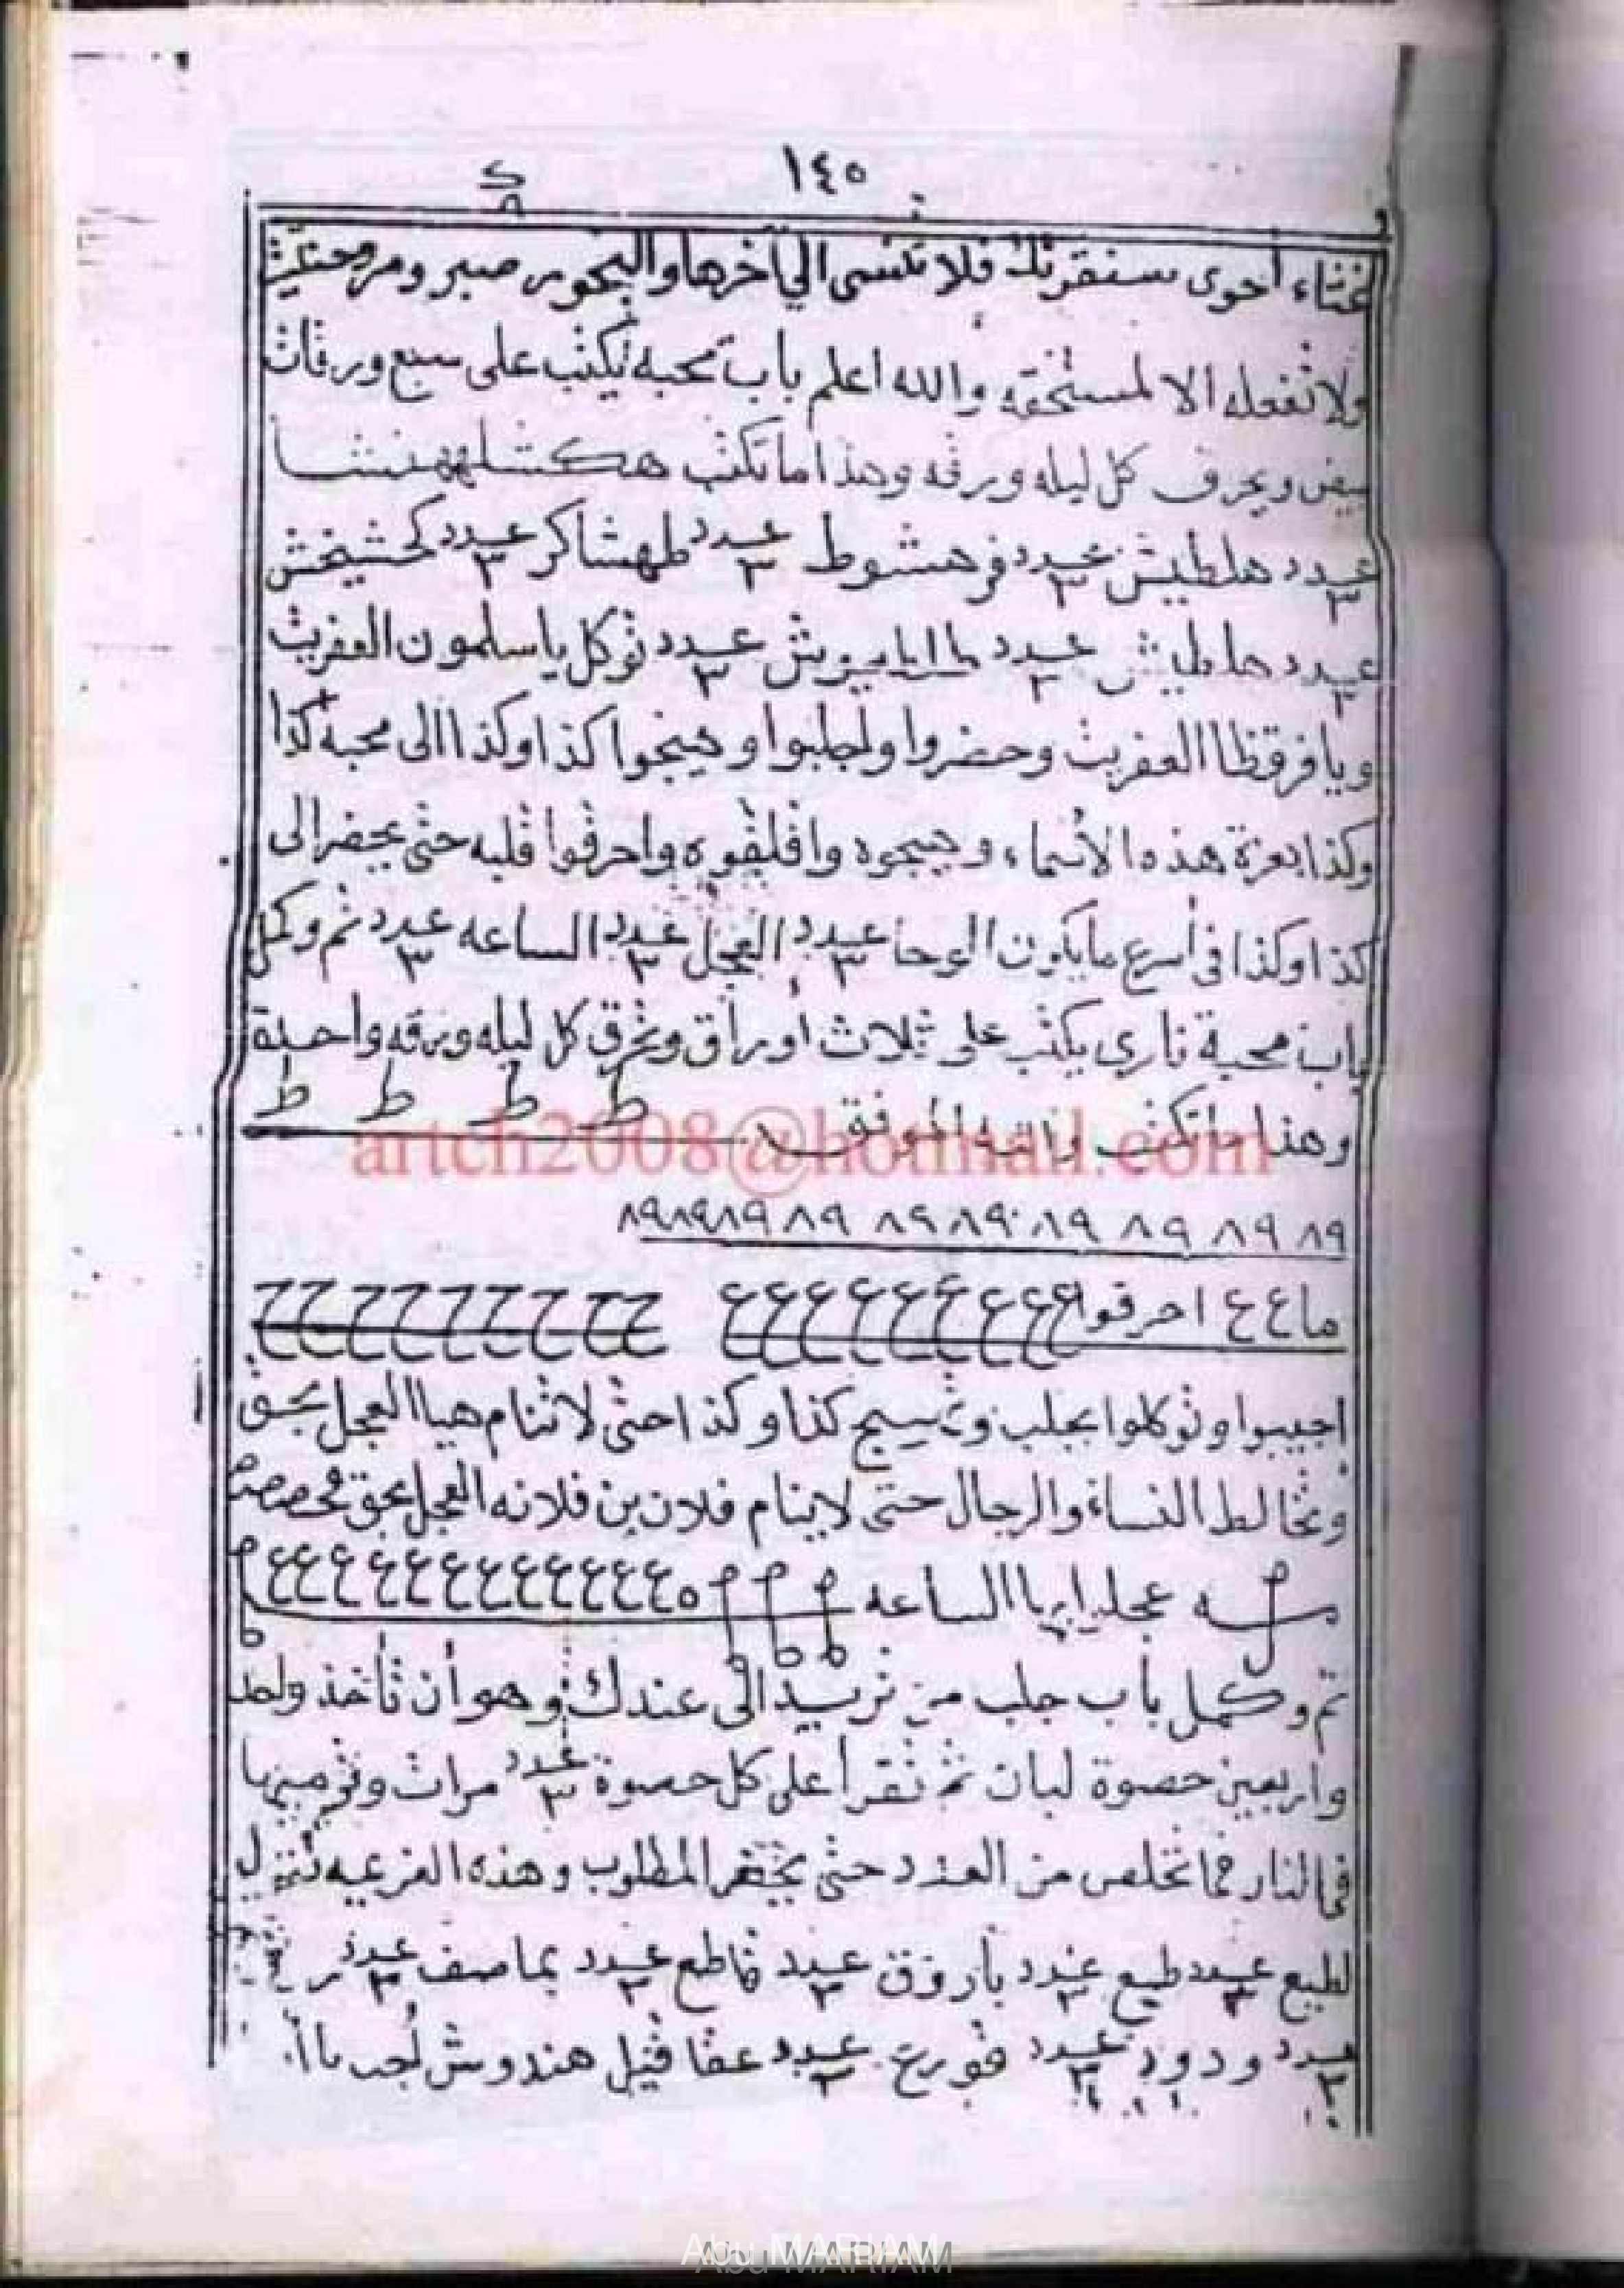 ١٤٥
غثاء أحوى سنقرئك فلا تنسى الي آخرها والبخور صبر ومر وحنتيت
ولا تفعله الا لمستحقه والله اعلم باب محبه يكتب على سبع ورقات
بيض ويحرق كل ليله ورقه وهذا ما تكتب
عدد ٣ هلطيش عدد ٣ فرهشوط عدد ٣ طهشاكر عدد ٣ كخشيخش
عدد ٣ هلطيش عدد ٣ عدد ٣ توكل يا سلمون العفريت
ويا فرقظا العفريت وحضروا ولجلبوا وهيجوا كذا وكذا الى محبه كذا
وكذا بعزة هذه الأسماء وهيجوه واقلقوه واحرقوا قلبه حتى يحضر الى
كذا وكذا في أسرع ما يكون الوحا عدد ٣ العجل عدد ٣ الساعه عدد ٣ تم وكمل
باب محبة ناري يكتب على ثلاث أوراق وتحرق كل ليله ورقه واحدة
وهذا ما تكتب والله الموفق ط ط ط ط
artch2008@hotmail.com
٨٩ ٨٩ ٨٩ ٨٩ ٨٩ ٨٩ ٨٩ ٨٩ ٨٩ ٨٩
ما ع ع احرقوا ع ع ع ع ع ع ع ع ع ح ح ح ح ح ح ح ح ح
اجيبوا وتوكلوا بجلب وتهييج كذا وكذا حتى لا تنام هيا العجل بحق
وتخالط النساء والرجال حتى لا ينام فلان بن فلانه العجل بحق
عجل الساعه م م م ٥ ع ع ع ع ع ع ع ع ع ع ع ع م
تم وكمل باب جلب من تريد الى عندك وهو أن تأخذ واحد
واربعين حصوة لبان ثم تقرأ على كل حصوة عدد ٣ مرات وترميها
في النار فما تخلص من العدد حتى يحضر المطلوب وهذه العزعيه تنزل
لطيع عدد ٣ طيع عدد ٣ باروق عدد ٣ قاطع عدد ٣ بماصف عدد ٣
عدد ٣ ودود عدد ٣ هورع عدد ٣ عقاقيل هندوش أجب
Abu MARIAM